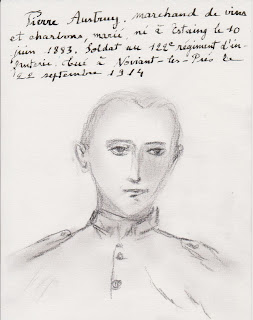 Pierre Austruy, marchand de vins
et charbons, marié, né à Estaing le 10
juin 1883. Soldat au 122e régiment d'in-
fanterie. Tué à Noviant-les-Prés le
22 septembre 1914